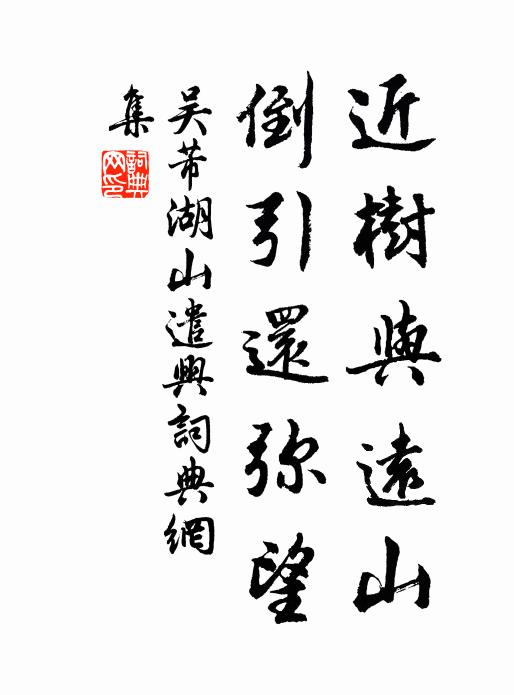 近樹與遠山
倒引還弥望
吴芾湖山遣興詞典網
集
詞典
网印